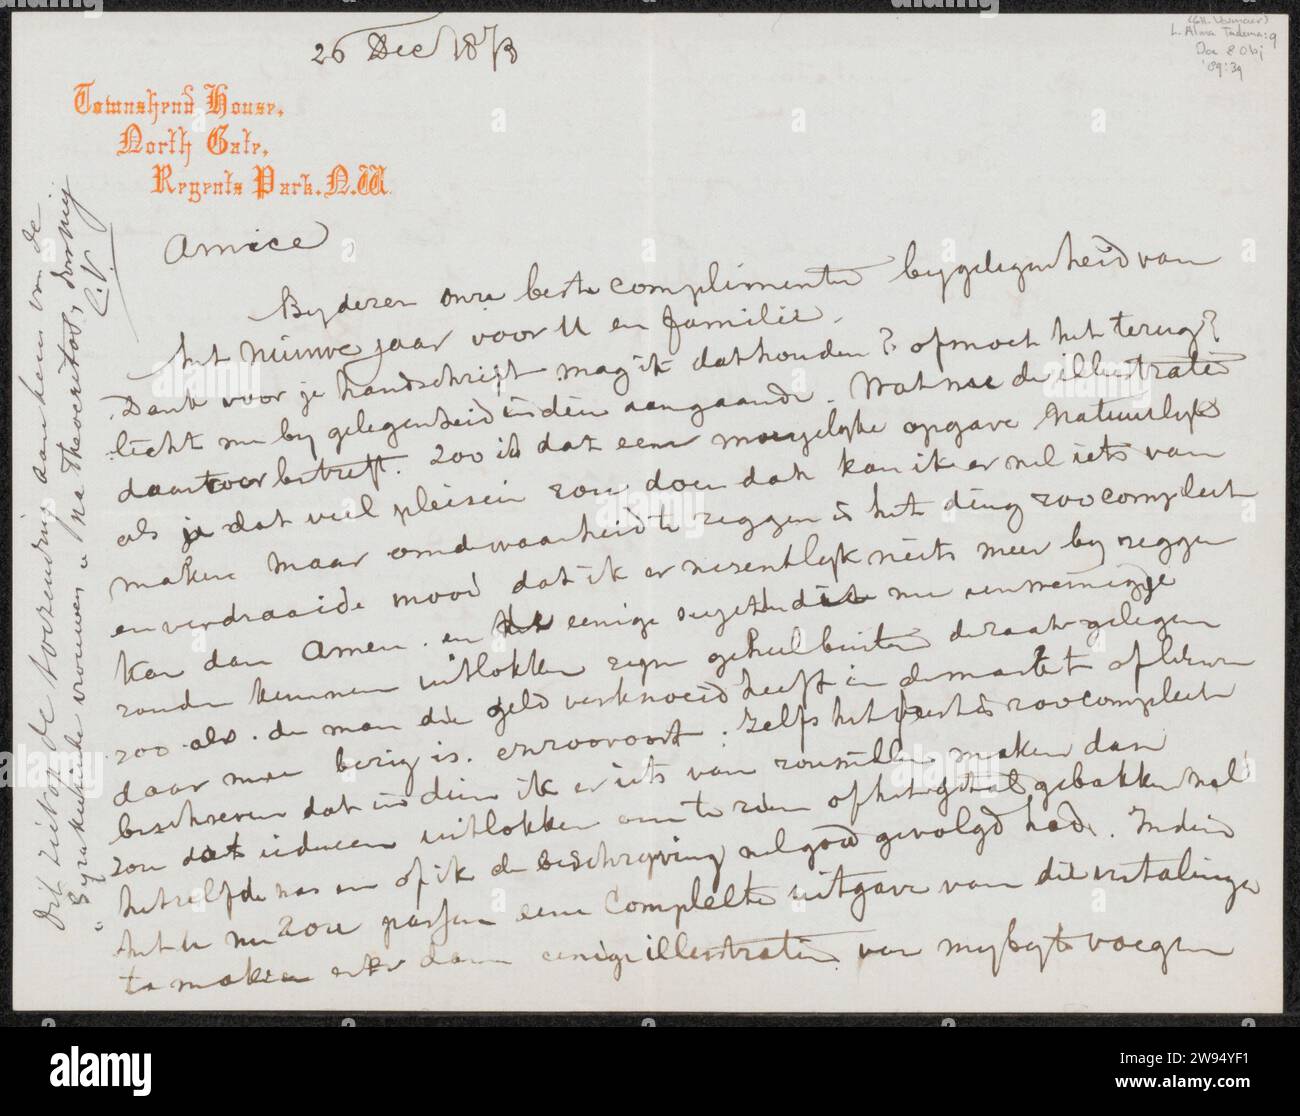 26 Dec 1873
(Gh. Vosmaer)
L. Alma Tadema: 9
Doc & Obj
'89:39
Townshend House,
North Gate,
Regents Park. N.W.
Amice
By dezen onze beste complimenten bygelegenheid van
het nieuwe jaar voor U en familie.
Dank voor je handschrift mag ik dat houden? of moet het terug?
licht me by gelegenheid indien aangaande. Wat nu de illustratie
daartoe betreft. Zoo is dat eene moeyelyke opgave Natuurlyk
als je dat veel pleisier zou doen dan kan ik er wel iets van
maken maar om de waarheid te zeggen is het ding zoo compleet
en verdraaide mooi dat ik er wesentlyk niets meer by zeggen
kan dan Amen. en de eenige die me een weinigje
zouden kunnen uitlokken zyn geheel buiten gelegen
zoo als de man die geld verknoeid heeft in de markt of
daar mee bezig is. enzoovoort. Zelfs het feest is zoo compleet
beschreven dat indien ik er iets van zou willen maken dan
zou dat iedereen uitlokken om te zien of het gebakken wel
hetzelfde was en of ik de beschryving wel goed gevolgd had. Indien
het U nu zou passen eene Complete uitgave van die vertalinge
te maken eer dan eenige illustratien van my by te voegen
Dit ziet op de toezending aan hem van de
"Syrakusische vrouwen" na Theocritos, door my
C.V.
alamy
Image ID: 2W94YF1
www.alamy.com